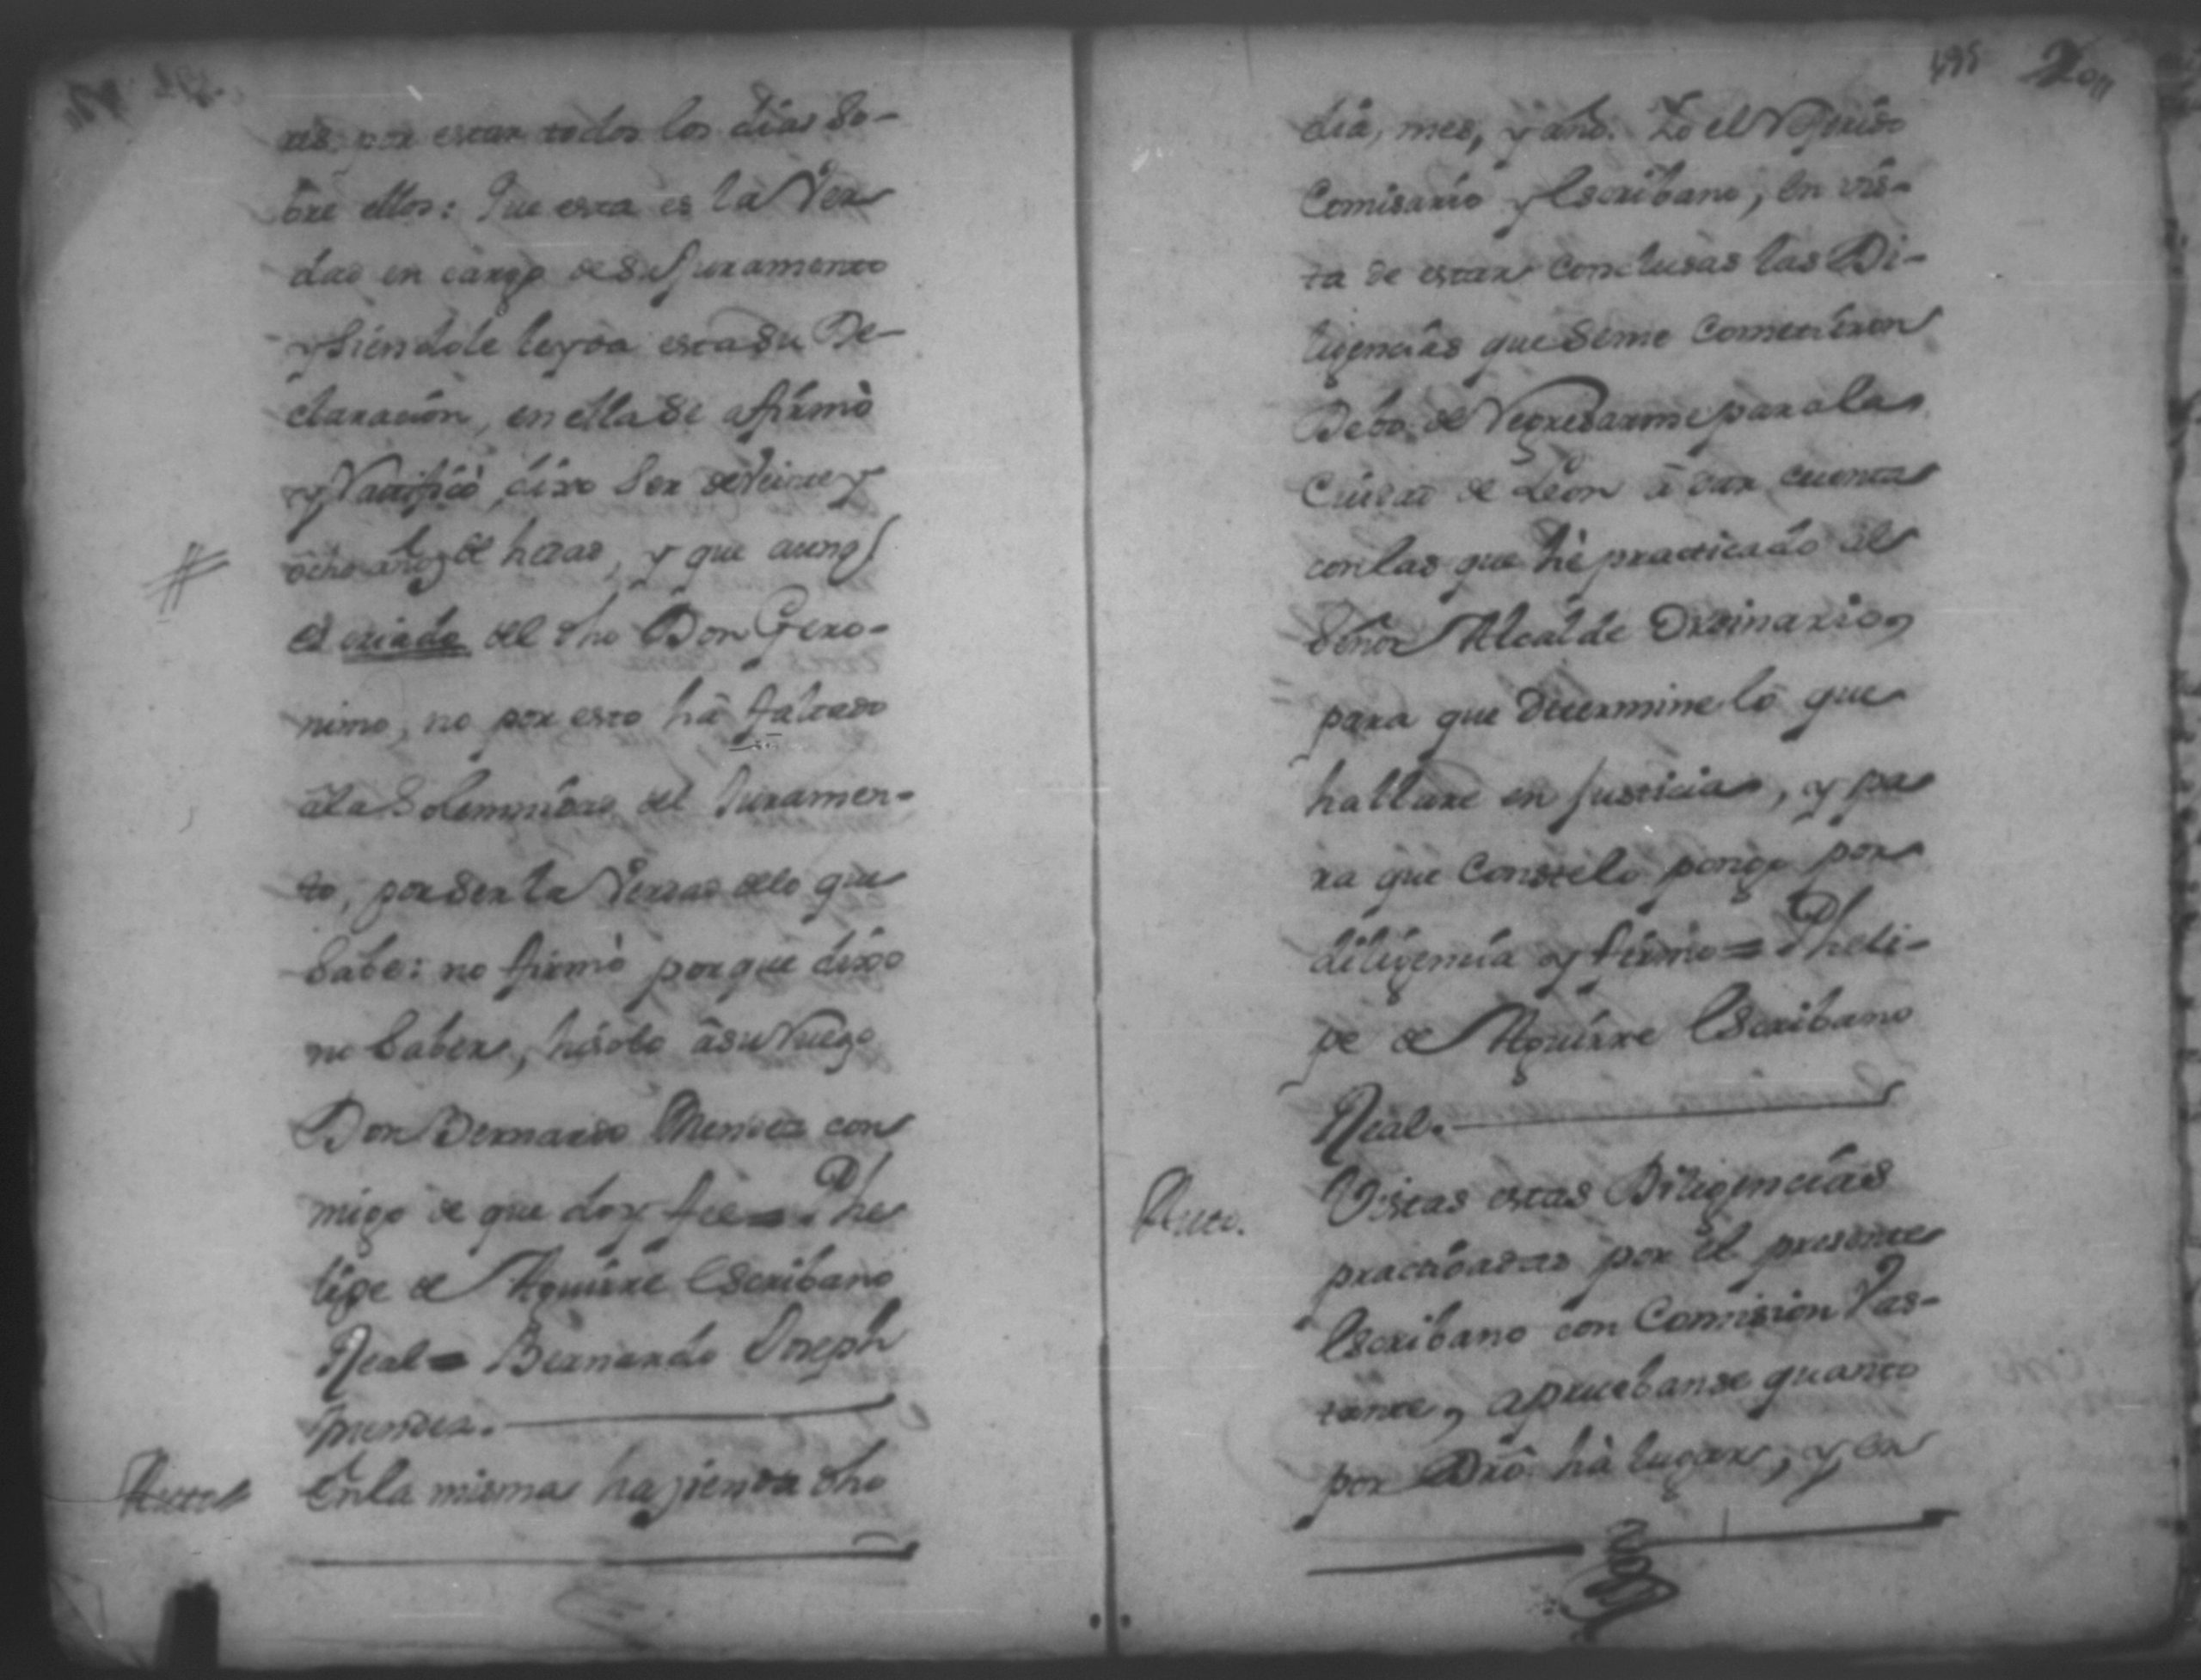 res por estar todos los dias so-
bre ellos: Que esta es la Ver
dad en cargo de su Juramento
y siendole leyda esta su De-
claración, en ella se afirmò
y Ratificò, dixo ser de veinte y
ocho años de hedad, y que aunq
es criado del dho Don Gero-
nimo, no por esto hà faltado
àla Solemnidad del Juramen-
to, por ser la Verdad delo que
Sabe: no firmò porque dixo
no Saber, hisolo àsu Ruego
Don Bernardo Mendez con
migo de que doy fee = Phe
lipe de Aguirre Escribano
Real = Bernardo Joseph
Mendez.
Auto En la misma hazienda dho
495
dia, mes, y año. Yo el Referido
Comisario y Escribano, en vis-
ta de estar conclusas las Di-
ligencias que seme cometieron
Debo de Regresarme para la
Ciudad de Leon à dar cuenta
con las que hè practicado àl
Señor Alcalde Ordinario,
para que determine lo que
hallare en Justicia, y pa
ra que Conste lo pongo por
diligencia y firmo = Pheli-
pe de Aguirre Escribano
Real.
Auto. Vistas estas Diligencias
practicadas por el presente
Escribano con Comision Vas-
tante, apruebanse quanto
por Dro hà lugar, y en